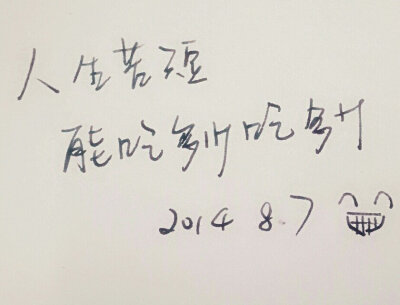 人生苦短
能吃多少吃多少
2014 8.7